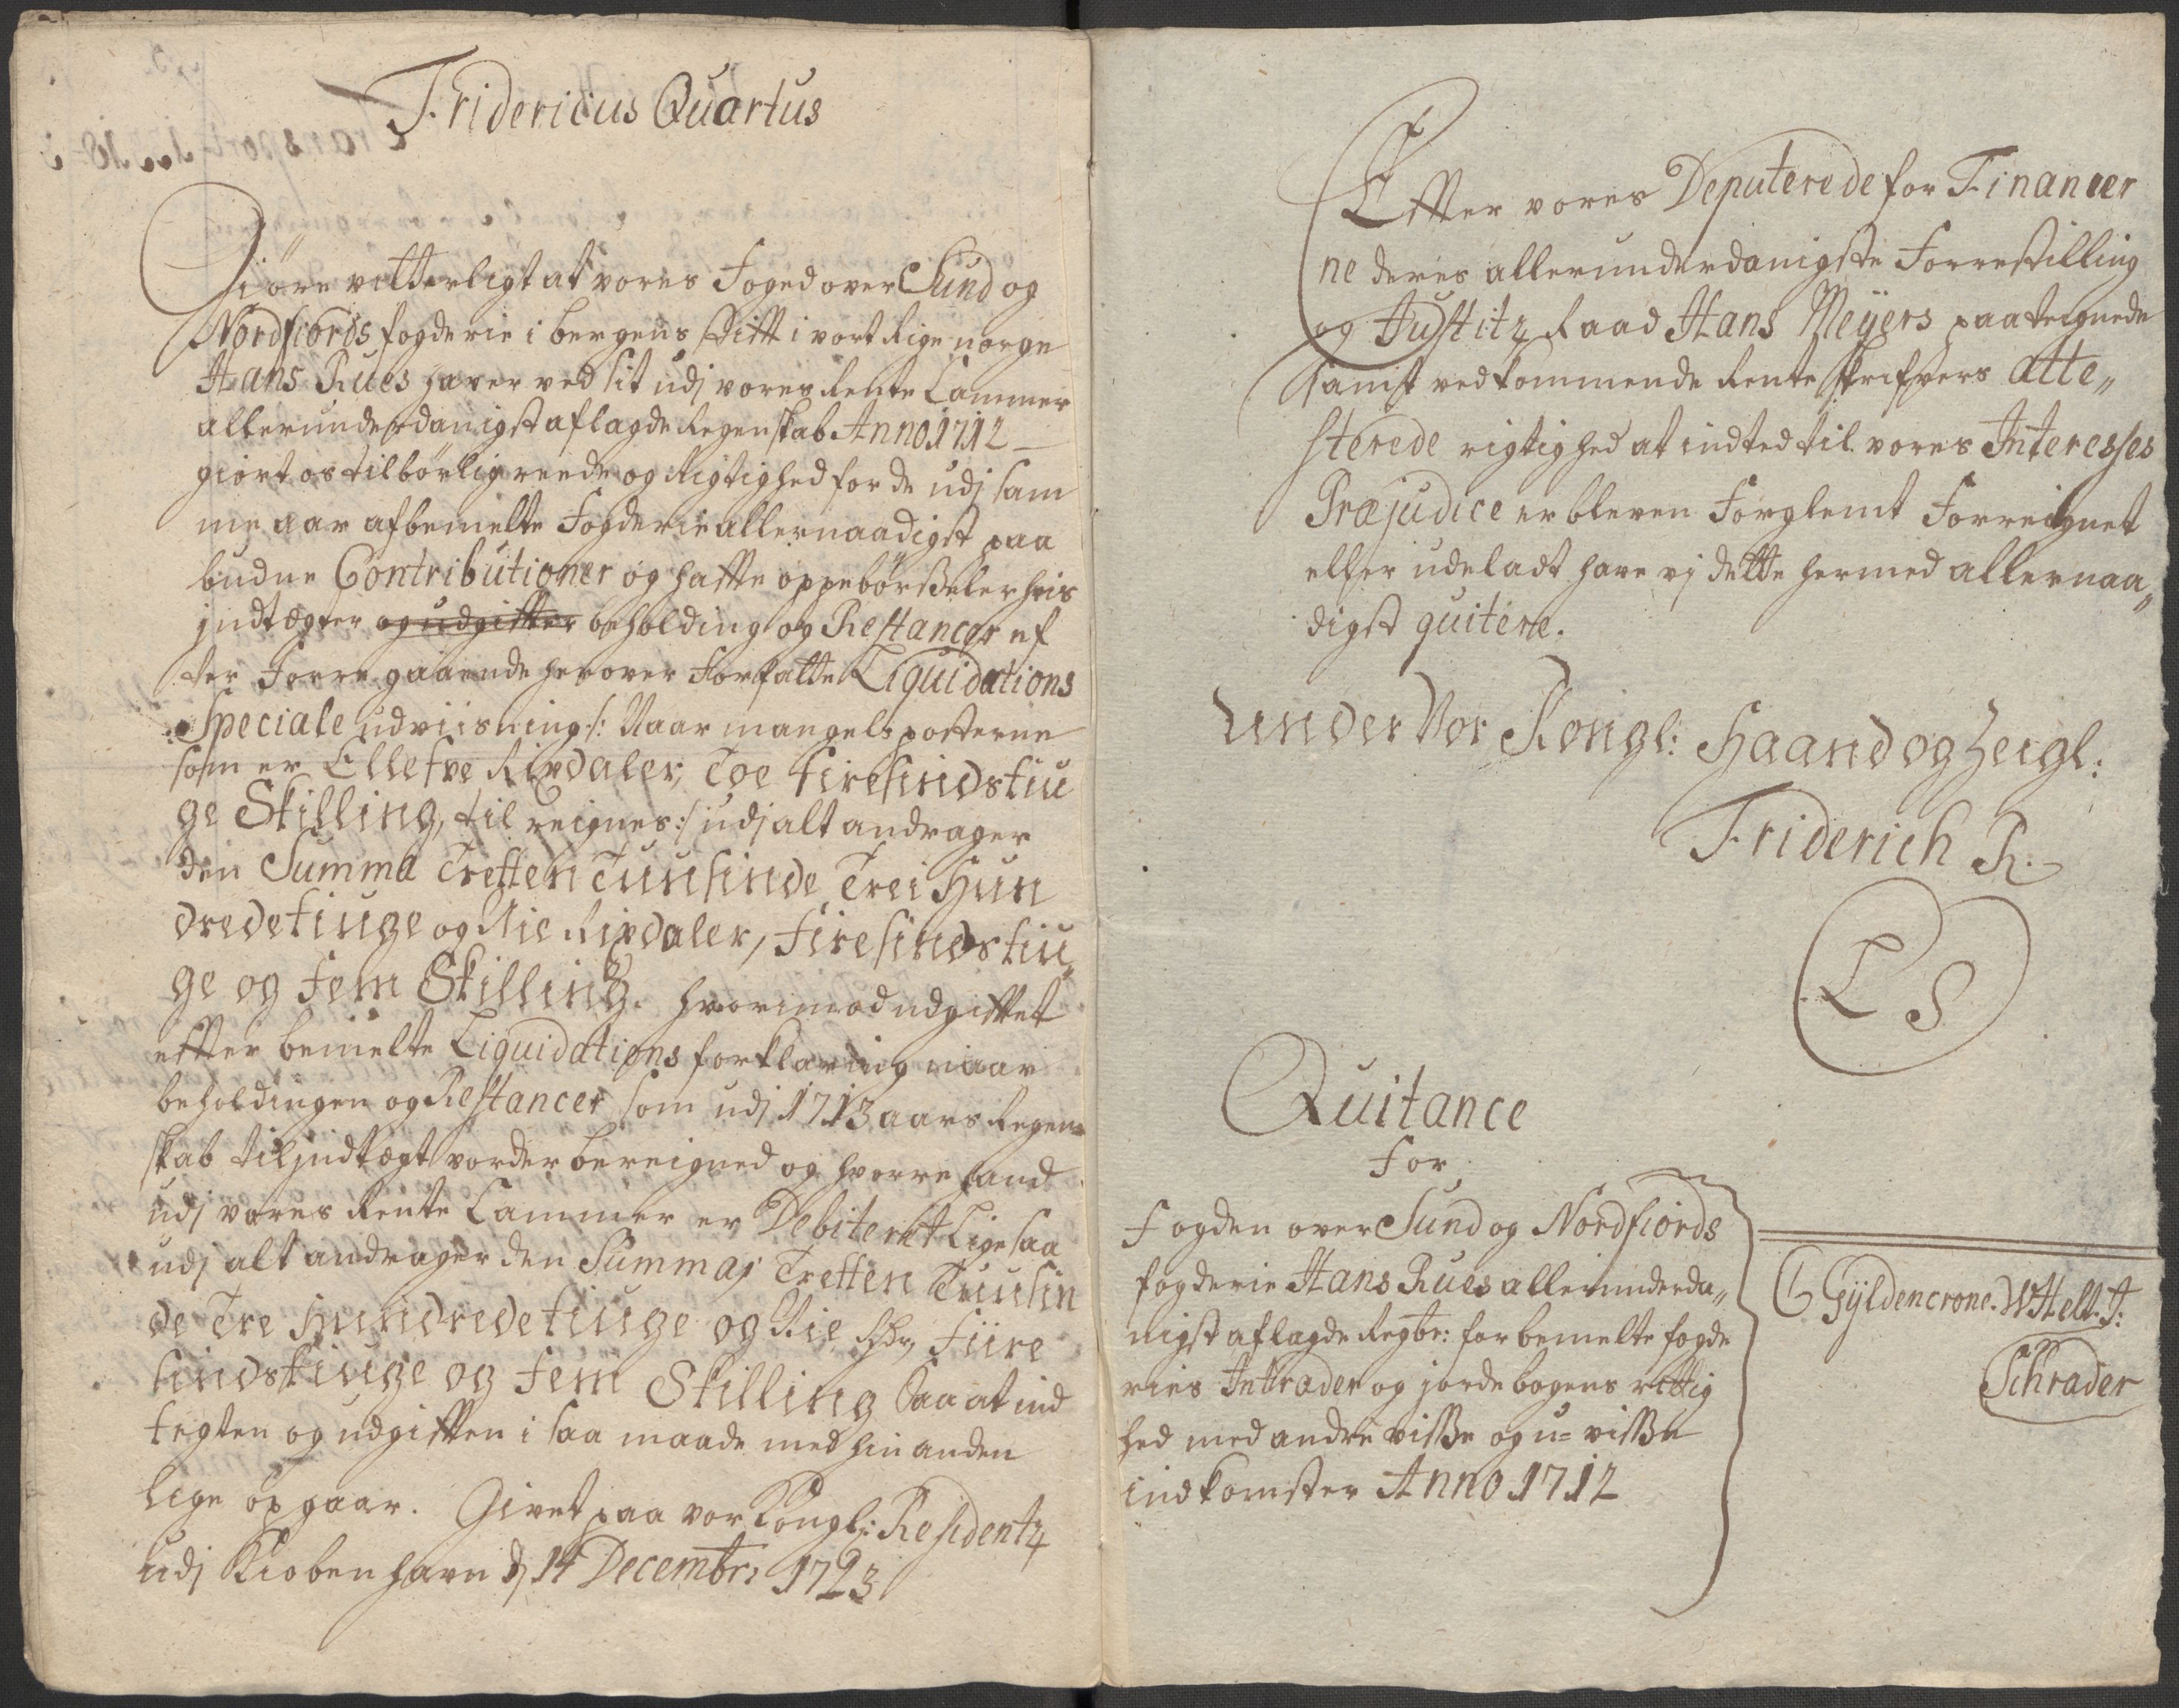 Fridericus Quartus
Giöre vitterligt at vores Foged over Sund og
Nordfiords fogderie i bergens stift i vort Rige norge
Hans Rues haver ved sit udj vores Rente Cammer
allerunderdanigst aflagde Regenskab Anno 1712
giort os tilbörlig reede og Rigtighed for de udj sam
me aar af bemelte Fogderie allernaadigst paa
budne Contributioner og hafte oppebörßeler hvis
jndtægter og udgifter beholding og Restancer ef
ter Forregaaende herover Forfatte Liquidations
Speciale udviisning /: Naar mangels posterne
som er Elletve Rixdaler, Toe firesindstiu
ge Skilling, til reignes :/ udj alt andrager
den Summa Tretten Tuusinde, Trei Hun
drede tiuge og Nie Rixdaler, firesindstiu„
ge og fem Skilling. hvorimod udgiftet
efter bemelte Liquidations forklaring naar
beholdingen og Restancer som udj 1713 aars Regen=
skab til jndtægt vorder bereigned og hvorre hand
udj vores Rente Cammer er Debiteret Lige saa
udj alt andrager den Summa, Tretten Tuusin
de Tre Hundrede tiuge og Nie Rdr, fiire
sindstiuge og fem Skilling Saa at ind
tegten og udgiften i saa maade med hin anden
lige op gaar. Givet paa vor Kongl: Residentz
udj Kiobenhavn d 14 Decembr: 1723
Efter vores Deputerede for Financer
ne deres allerunderdanigste Forrestilling
og Justitz Raad Hans Meÿers paategnede
samt vedkommende Rente skrifvers atte„
sterede rigtighed at indted til vores Interesses
Præjudice er bleven Forglemt Forreignet
eller udeladt have vj dette hermed allernaa„
digst quitere.
Under Vor Kongl: Haand og Zeigl:
Friderich R.
L S
Quitance
For
Fogden over Sund og Nordfiords
fogderie Hans Rues allerunderda„
nigst aflagde Regbr: for bemelte fogde
ries Intrader og jordebogens rettig
hed med andre visße og u= visße
indkomster Anno 1712
C Gÿldencrone. W Helt. J:
Schrader